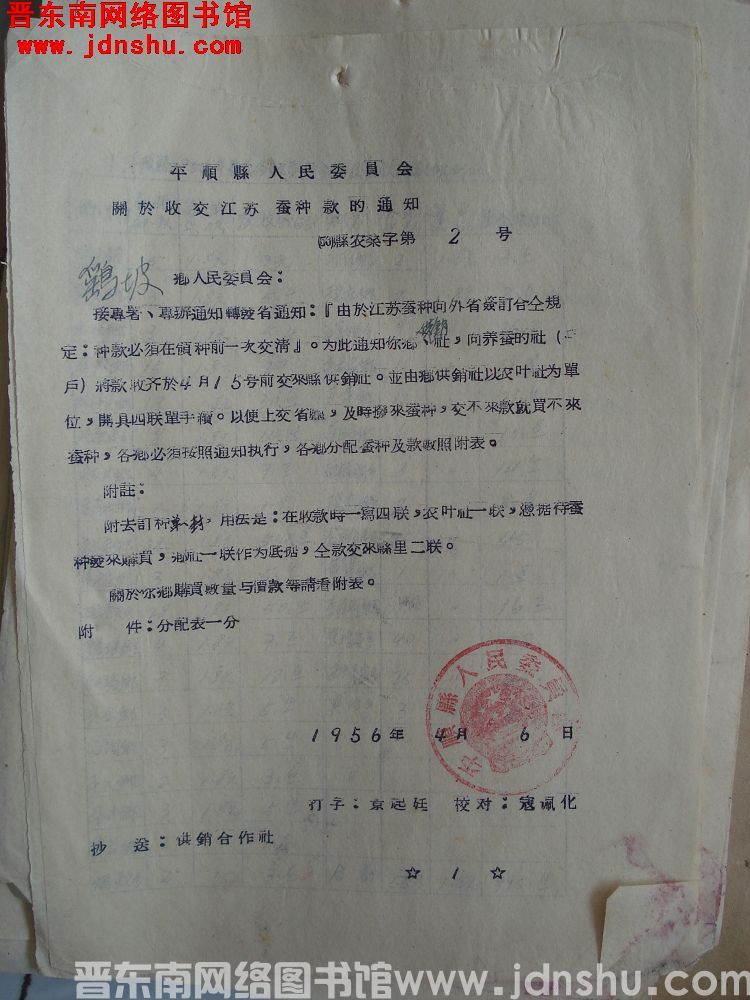 晋东南网络图书馆
www.jdnshu.com
平順縣人民委員会
關於收交江苏蚕种款的通知
(56)縣农桑字第 2 号
鄉人民委員会：
接專署、專辦通知轉發省通知：『由於江苏蚕种向外省簽訂合仝規
定：种款必须在領种前一次交清』。为此通知你鄉、社，向养蚕的社（
戶）將款收齐於4月15号前交來縣供銷社。並由鄉供銷社以农叶社为單
位，開具四联單手續。以便上交省縣，及時撥來蚕种，交不來款就買不來
蚕种，各鄉必須按照通知执行，各鄉分配蚕种及款数照附表。
附註：
附去訂种 用法是：在收款時一寫四联，农叶社一联，憑据待蚕
种發來購買，鄉社一联作为底据，仝款交來縣里二联。
關於你鄉購買数量与價款等請看附表。
附 件：分配表一分
平順縣人民委員会
1956年 4月 6日
打字：京起廷 校对：寇佩化
抄 送：供銷合作社
☆ 1 ☆
晋东南网络图书馆www.jdnshu.com